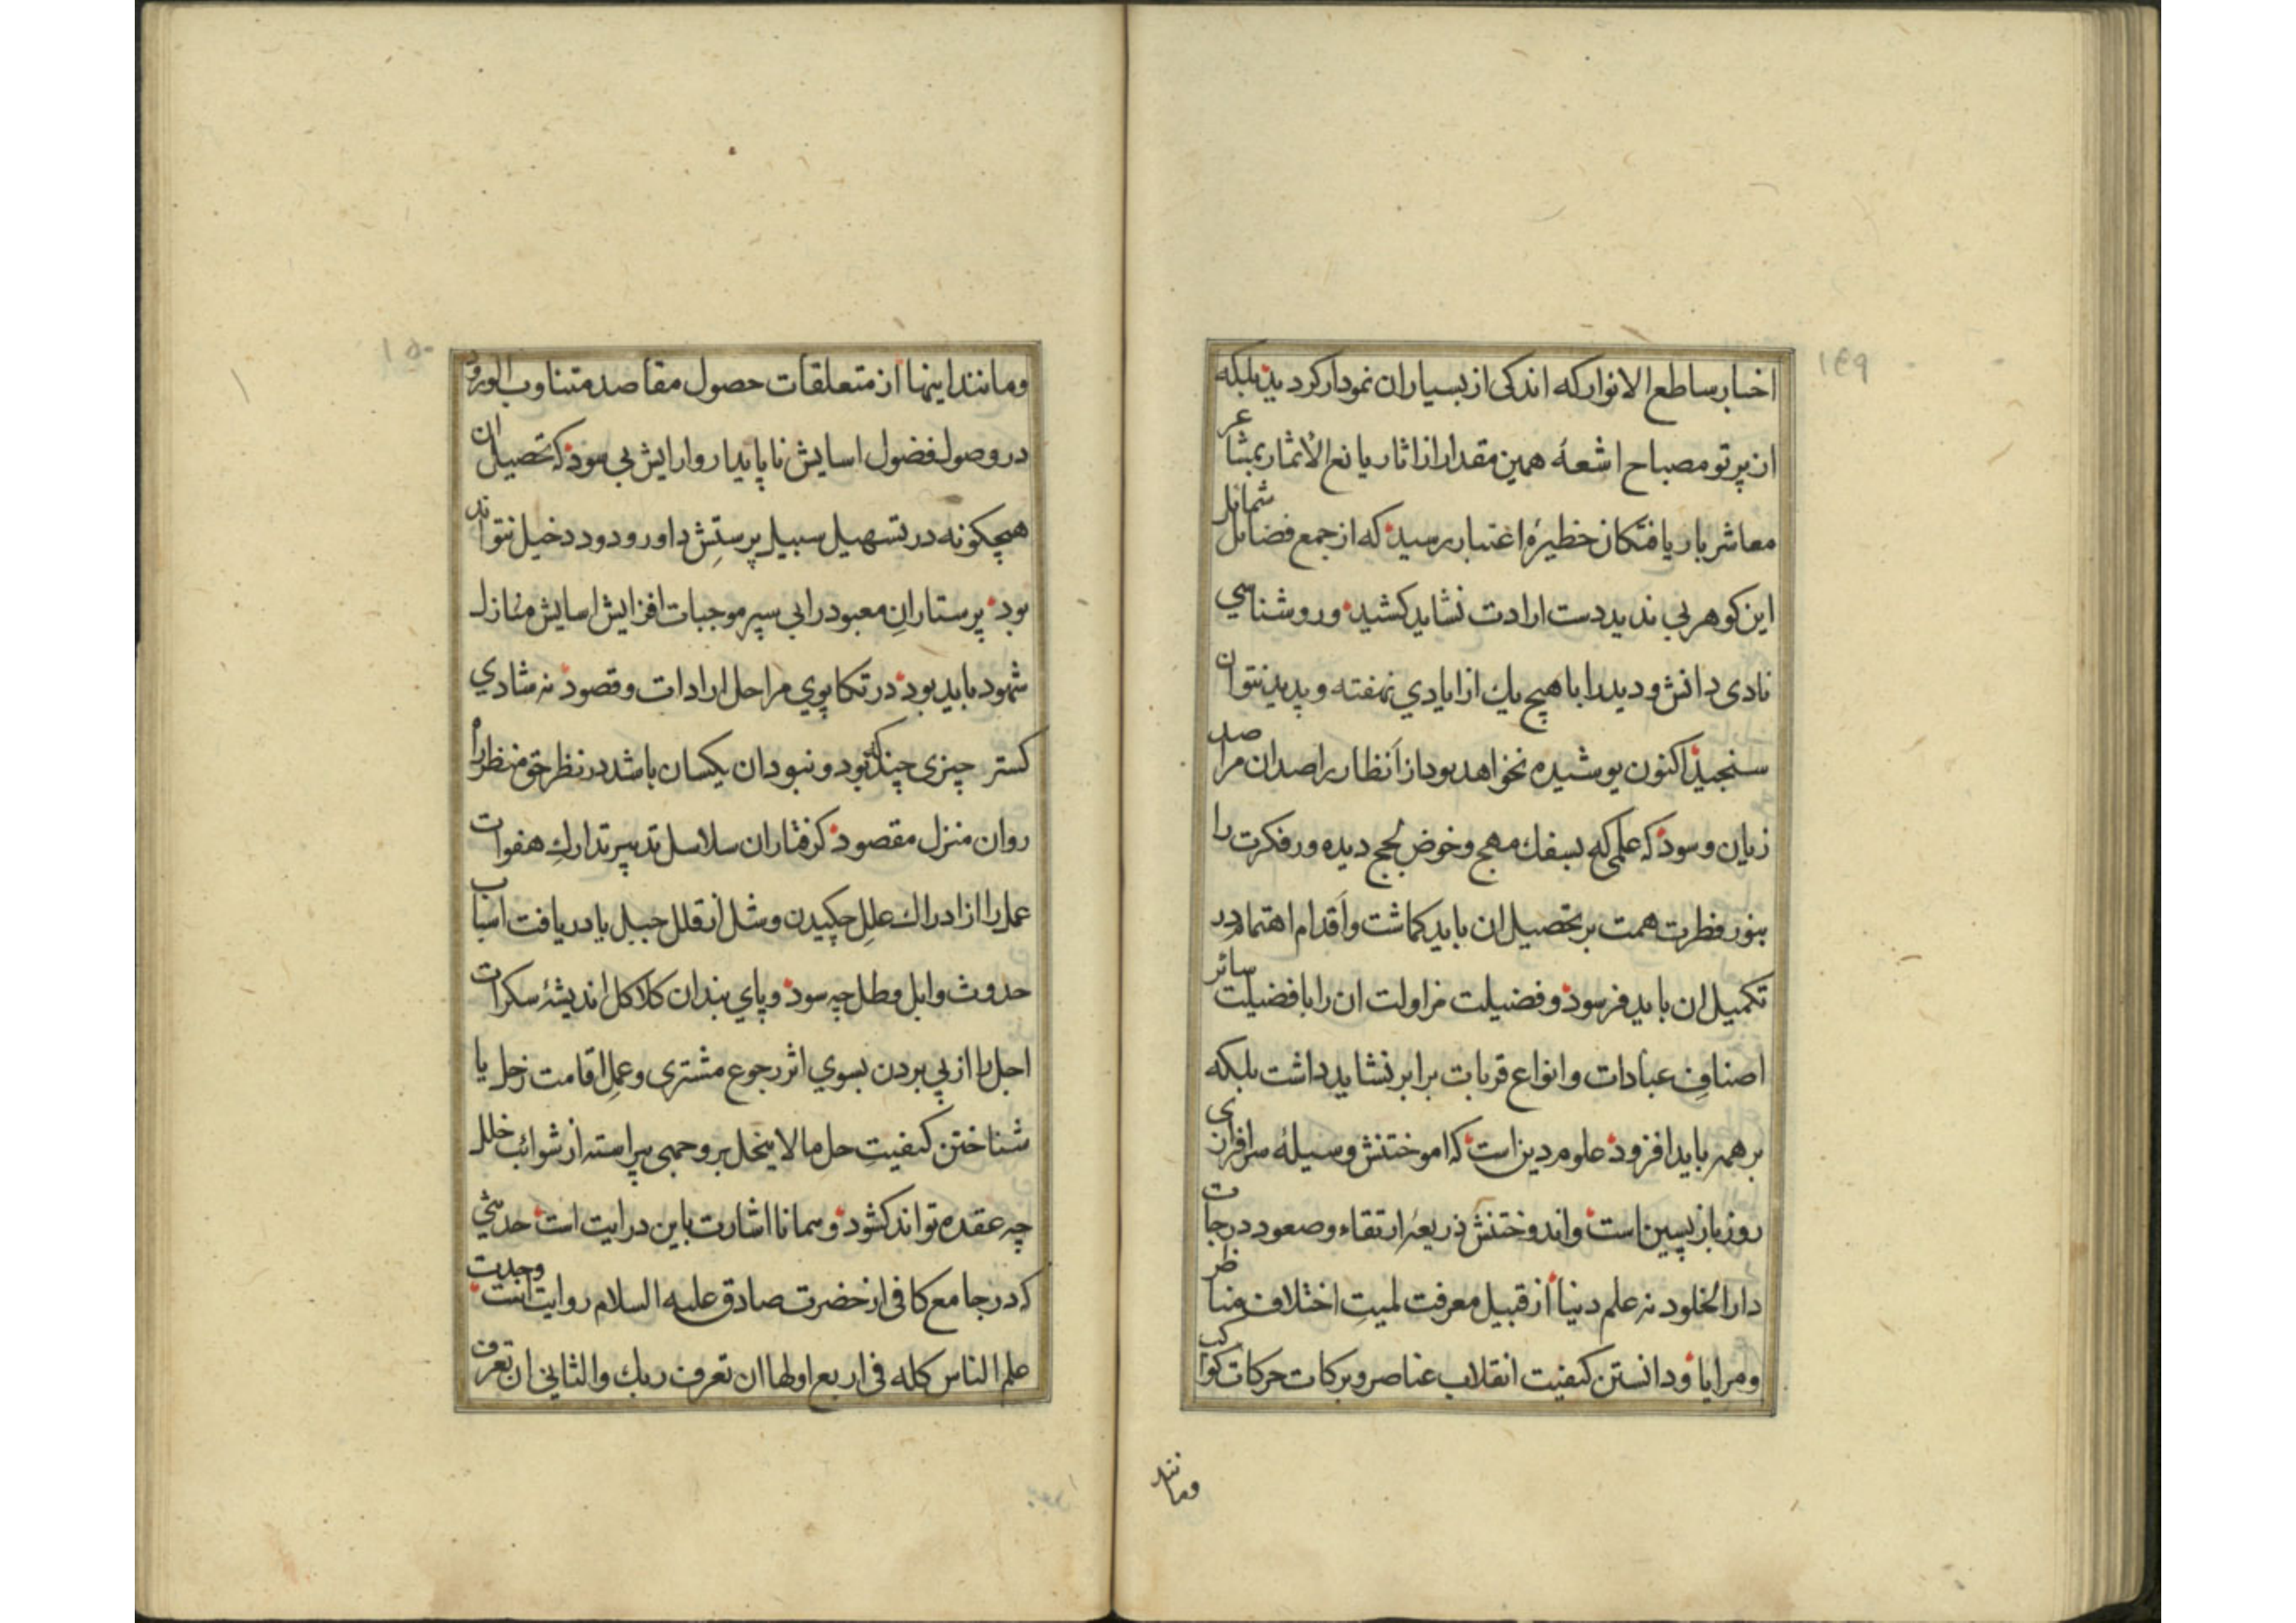 ١٤٩
اخبار ساطع الانوار که اندکی از بسیار ان نمودار کردید بلکه
از پرتو مصباح اشعهٔ همین مقدار از اثار یانع الاثمار بمشاعر
معاشر بار یافتکان خطیرهٔ اعتبار رسید که از جمع فضائل شمائل
این کوهر بی ندید دست ارادت نشاید کشید و روشناسی
نادی دانش و دید را با هیچ یك از ایادي نهفته و پدید نتوان
سنجید اکنون پوشیده نخواهد بود از اَنظار راصدان مراصد
زیان و سود که علمی که بسفك مهج و خوض لجج دیده ور فکرت را
بنور فطرت همت بر تحصیل ان باید کماشت و اَقدام اهتمام در
تکمیل ان باید فرسود و فضیلت مزاولت ان را با فضیلت سائر
اصنافِ عبادات و انواع قربات برابر نشاید داشت بلکه
بر همه باید افزود علوم دین است که اموختنش وسیلهٔ سرافرازی
روز بازپسین است و اندوختنش ذریعهٔ ارتقاء و صعود درجات
دار الخلود نه علم دنیا از قبیل معرفت لمیتِ اختلاف مناظر
و مرایا و دانستن کیفیت انقلاب عناصر و برکات حرکات کواکب
ومانند
١٥٠
ومانند اینها از متعلقات حصول مقاصد متناوب الورود
در وصول فضول اسایش ناپایدار و ارایش بی سود که تحصیل ان
هیچکونه در تسهیل سبیل پرستِش داور ودود دخیل نتواند
بود پرستارانِ معبود را بی سپر موجبات افزایش اسایش منازل
شهود باید بود در تکاپوي مراحل ارادات و قصود نه شادي
کستر چیزی چند که بود و نبود ان یکسان باشد در نظر حق منظر راه
روان منزل مقصود کرفتاران سلاسل تدبیر تدارك هفوات
عمل را از ادراك علل چکیدن وشل از قلل جبل یا دریافت اسباب
حدوث وابل و طل چه سود و پاي بندان کلاکل اندیشهٔ سکرات
اجل را از پي بردن بسوي اثر رجوع مشتری و عملِ اقامت زحل یا
شناختن کیفیتِ حل ما لا ینحل بر وجهی پیراسته از شوائب خلل
چه عقده تواند کشود و همانا اشارت باین درایت است حدیثي
که در جامع کافی از حضرت صادق علیه السلام روایت است وجدت
علم الناس کله فی اربع اولها ان تعرف ربك والثاني ان تعرف